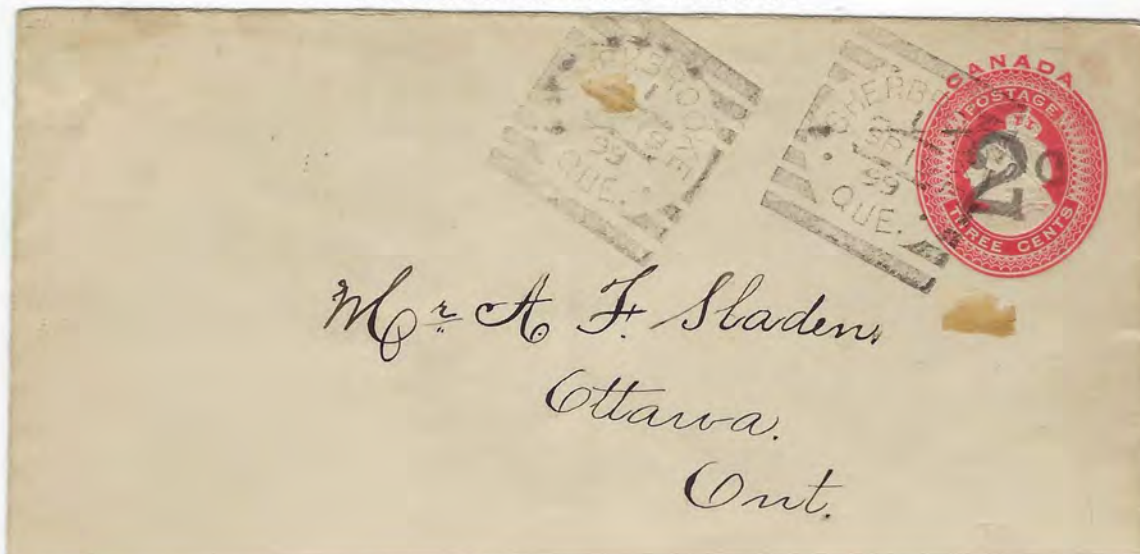 SHERBROOKE
99
QUE.
SHERB
SP 1
99
QUE.
CANADA
POSTAGE
2c
THREE CENTS
Mr. A. F. Sladen,
Ottawa.
Ont.